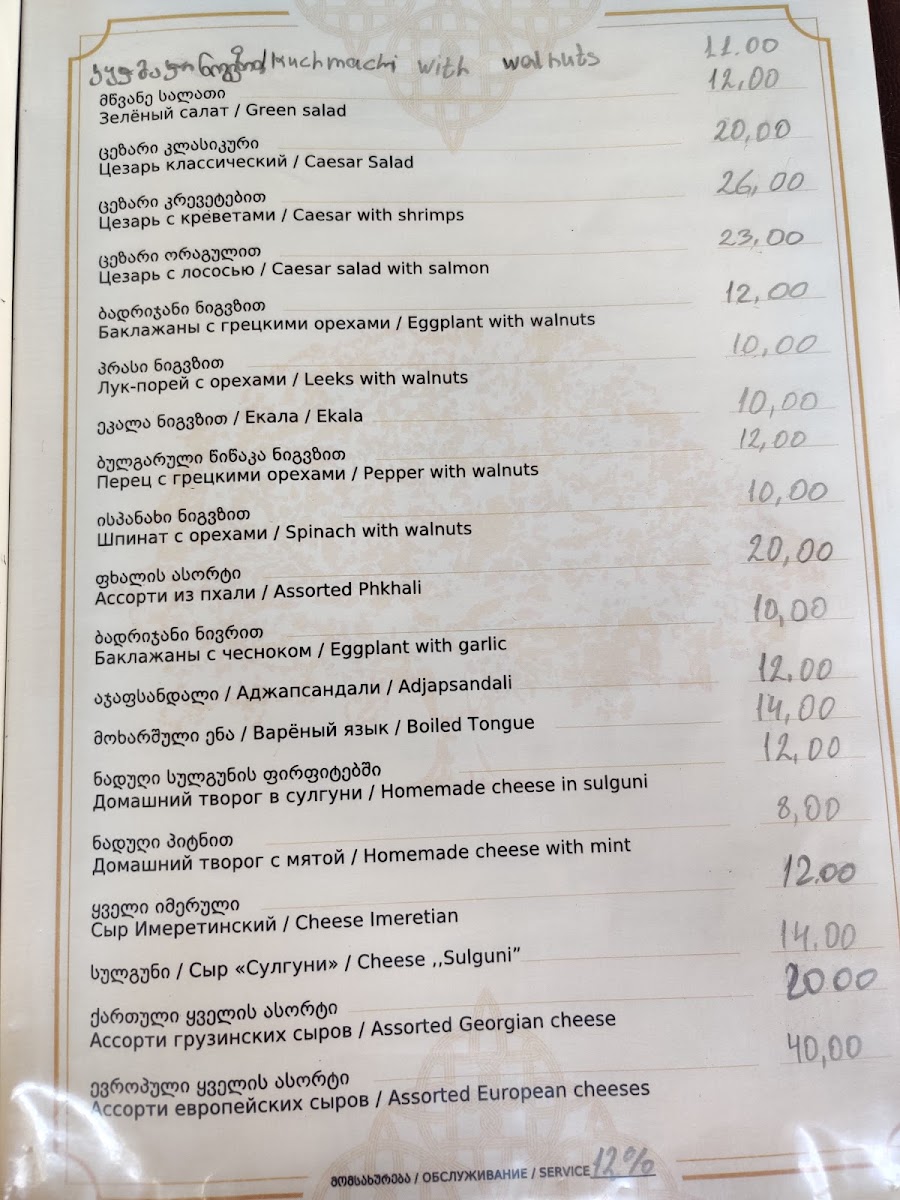 კუჭმაჭი ნიგვზით/Kuchmachi with walnuts 11.00
მწვანე სალათი 12,00
Зелёный салат / Green salad
ცეზარი კლასიკური 20,00
Цезарь классический / Caesar Salad
ცეზარი კრევეტებით 26,00
Цезарь с креветами / Caesar with shrimps
ცეზარი ორაგულით 23,00
Цезарь с лососью / Caesar salad with salmon
ბადრიჯანი ნიგვზით 12,00
Баклажаны с грецкими орехами / Eggplant with walnuts
პრასი ნიგვზით 10,00
Лук-порей с орехами / Leeks with walnuts
ეკალა ნიგვზით / Екала / Ekala 10,00
ბულგარული წიწაკა ნიგვზით 12,00
Перец с грецкими орехами / Pepper with walnuts
ისპანახი ნიგვზით 10,00
Шпинат с орехами / Spinach with walnuts
ფხალის ასორტი 20,00
Ассорти из пхали / Assorted Phkhali
ბადრიჯანი ნივრით 10,00
Баклажаны с чесноком / Eggplant with garlic
აჯაფსანდალი / Аджапсандали / Adjapsandali 12.00
მოხარშული ენა / Варёный язык / Boiled Tongue 14,00
ნადუღი სულგუნის ფირფიტებში 12,00
Домашний творог в сулгуни / Homemade cheese in sulguni
ნადუღი პიტნით 8,00
Домашний творог с мятой / Homemade cheese with mint
ყველი იმერული 12.00
Сыр Имеретинский / Cheese Imeretian
სულგუნი / Сыр «Сулгуни» / Cheese ,,Sulguni” 14.00
ქართული ყველის ასორტი 20 00
Ассорти грузинских сыров / Assorted Georgian cheese
ევროპული ყველის ასორტი 40,00
Ассорти европейских сыров / Assorted European cheeses
მომსახურება / ОБСЛУЖИВАНИЕ / SERVICE 12%